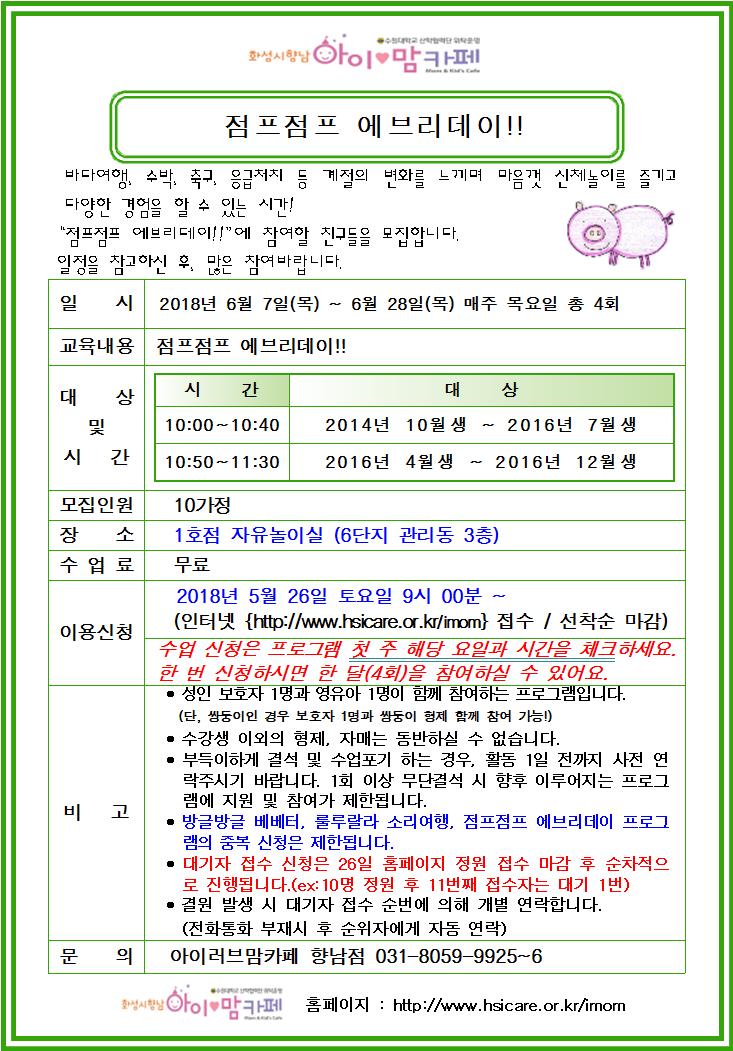 수원대학교 산학협력단 위탁운영
화성시향남 아이♥맘카페
Mom & Kid's Cafe
점프점프 에브리데이!!
바다여행, 수박, 축구, 응급처치 등 계절의 변화를 느끼며 마음껏 신체놀이를 즐기고
다양한 경험을 할 수 있는 시간!
“점프점프 에브리데이!!”에 참여할 친구들을 모집합니다.
일정을 참고하신 후, 많은 참여바랍니다.
일 시 2018년 6월 7일(목) ~ 6월 28일(목) 매주 목요일 총 4회
교육내용 점프점프 에브리데이!!
대 상 및 시 간
시 간 대 상
10:00~10:40 2014년 10월생 ~ 2016년 7월생
10:50~11:30 2016년 4월생 ~ 2016년 12월생
모집인원 10가정
장 소 1호점 자유놀이실 (6단지 관리동 3층)
수 업 료 무료
이용신청
2018년 5월 26일 토요일 9시 00분 ~
(인터넷 {http://www.hsicare.or.kr/imom} 접수 / 선착순 마감)
수업 신청은 프로그램 첫 주 해당 요일과 시간을 체크하세요.
한 번 신청하시면 한 달(4회)을 참여하실 수 있어요.
비 고
• 성인 보호자 1명과 영유아 1명이 함께 참여하는 프로그램입니다.
(단, 쌍둥이인 경우 보호자 1명과 쌍둥이 형제 함께 참여 가능!)
• 수강생 이외의 형제, 자매는 동반하실 수 없습니다.
• 부득이하게 결석 및 수업포기 하는 경우, 활동 1일 전까지 사전 연
락주시기 바랍니다. 1회 이상 무단결석 시 향후 이루어지는 프로그
램에 지원 및 참여가 제한됩니다.
• 방글방글 베베터, 룰루랄라 소리여행, 점프점프 에브리데이 프로그
램의 중복 신청은 제한됩니다.
• 대기자 접수 신청은 26일 홈페이지 정원 접수 마감 후 순차적으
로 진행됩니다.(ex:10명 정원 후 11번째 접수자는 대기 1번)
• 결원 발생 시 대기자 접수 순번에 의해 개별 연락합니다.
(전화통화 부재시 후 순위자에게 자동 연락)
문 의 아이러브맘카페 향남점 031-8059-9925~6
수원대학교 산학협력단 위탁운영
화성시향남 아이♥맘카페
Mom & Kid's Cafe
홈페이지 : http://www.hsicare.or.kr/imom